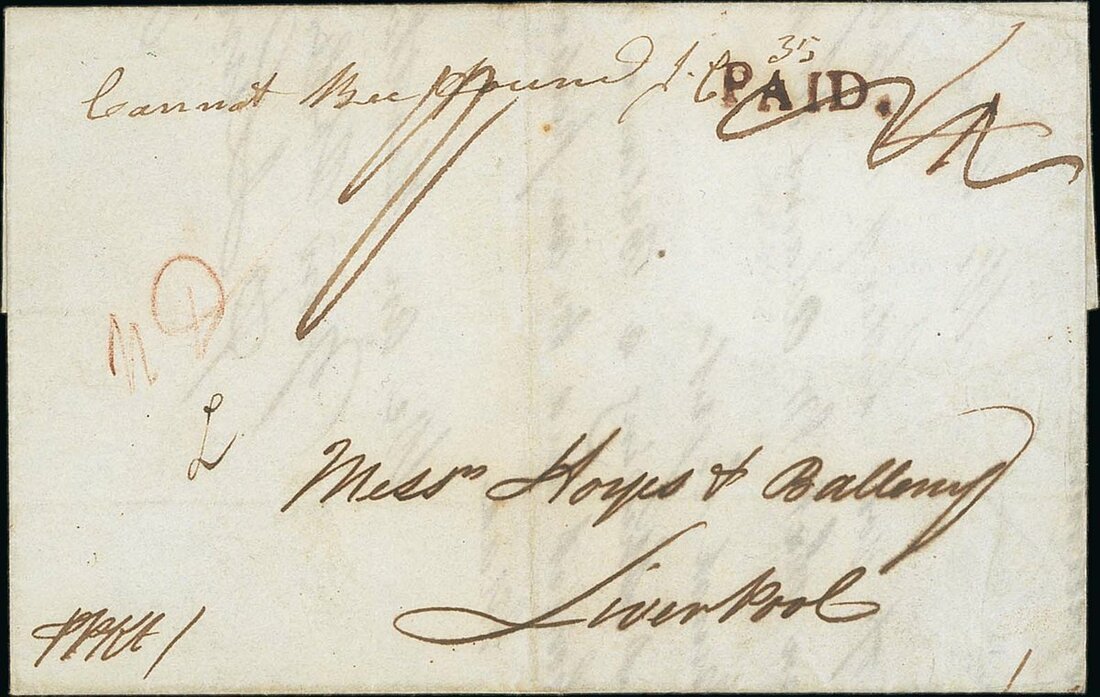 35
Cannot Bee found J.C. PAID.
L
Messrs Hoyes & Balleny
Liverpool